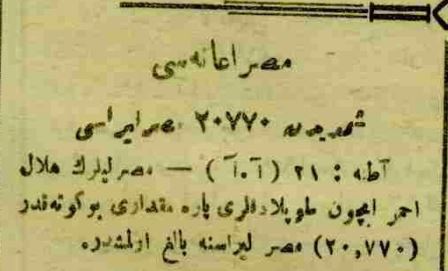 مصر اعانه‌سی
شمدیدن ۲۰۷۷۰ مصر لیراسی
آطنه : ۲۱ (آ.آ) — مصرلیلرك هلال
احمر ایچون طوپلادقلری پاره مقداری بوكونه‌قدر
(۲۰,۷۷۰) مصر لیراسنه بالغ اولمشدر.